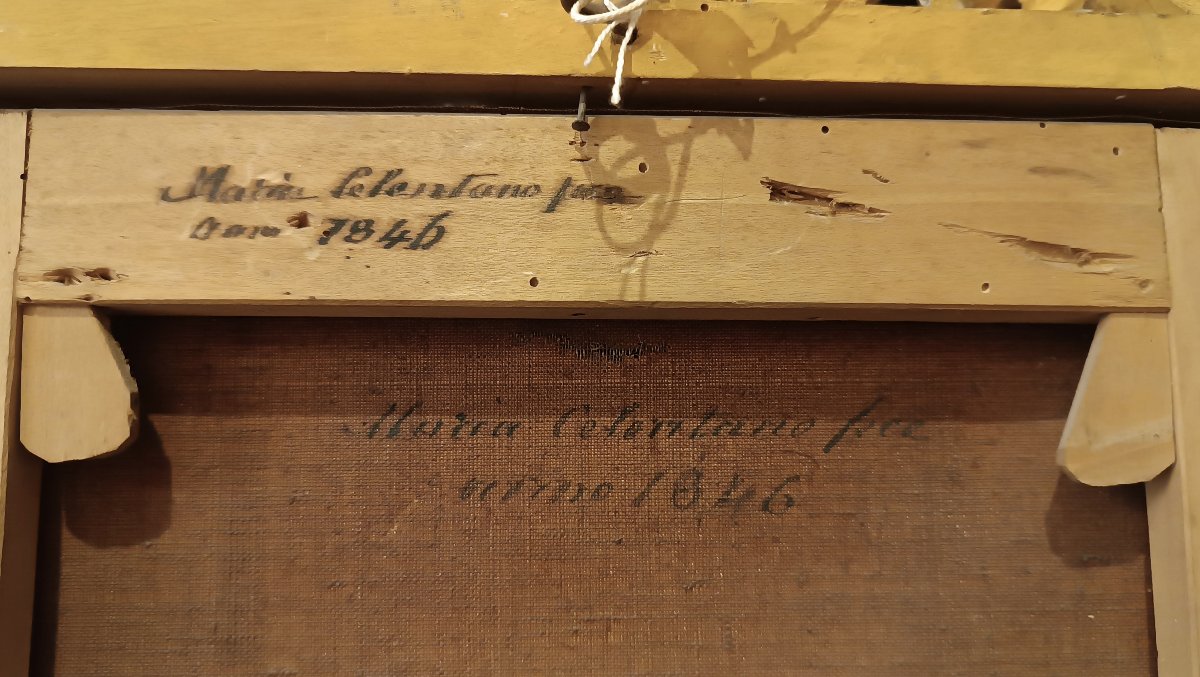 Maria Celentano fece
anno 1846
Maria Celentano fece
anno 1846